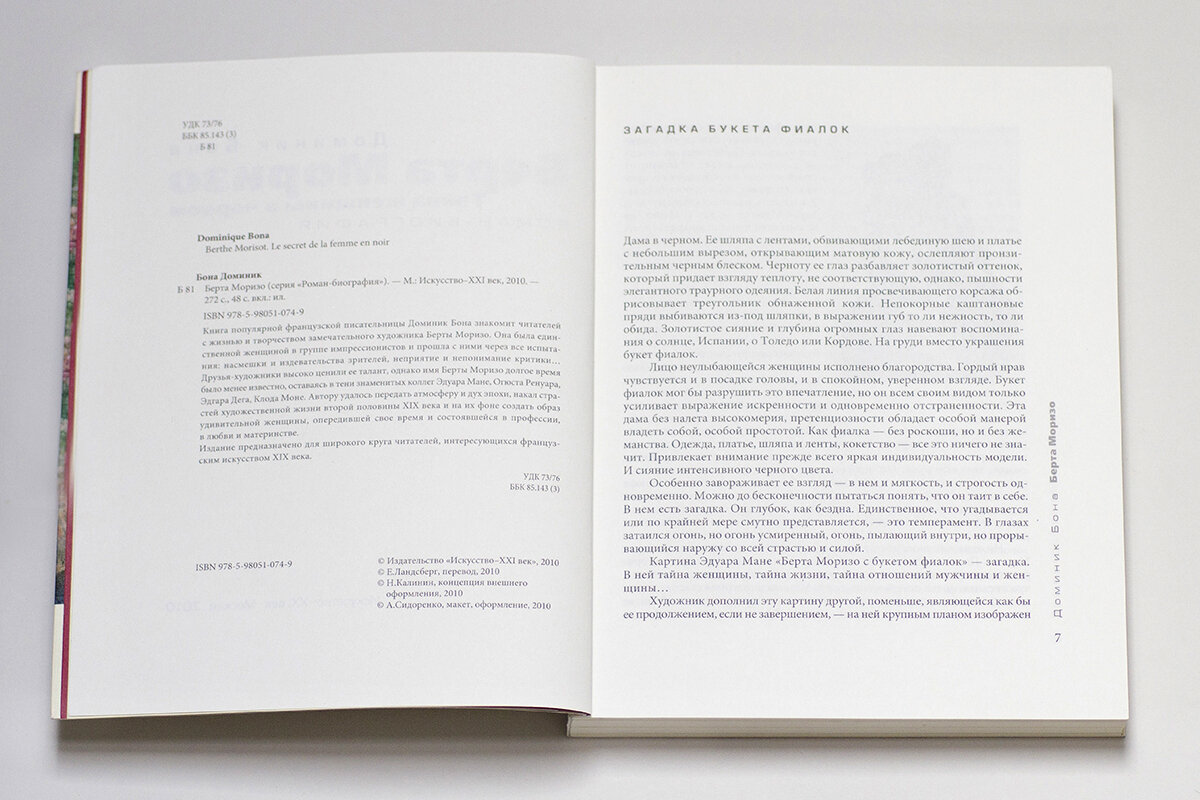 УДК 73/76
ББК 85.143 (3)
Б 81
Dominique Bona
Berthe Morisot. Le secret de la femme en noir
Бона Доминик
Б 81 Берта Моризо (серия «Роман-биография»). — М.: Искусство–XXI век, 2010. —
272 с., 48 с. вкл.: ил.
ISBN 978-5-98051-074-9
Книга популярной французской писательницы Доминик Бона знакомит читателей
с жизнью и творчеством замечательного художника Берты Моризо. Она была един-
ственной женщиной в группе импрессионистов и прошла с ними через все испыта-
ния: насмешки и издевательства зрителей, неприятие и непонимание критики…
Друзья-художники высоко ценили ее талант, однако имя Берты Моризо долгое время
было менее известно, оставаясь в тени знаменитых коллег Эдуара Мане, Огюста Ренуара,
Эдгара Дега, Клода Моне. Автору удалось передать атмосферу и дух эпохи, накал стра-
стей художественной жизни второй половины XIX века и на их фоне создать образ
удивительной женщины, опередившей свое время и состоявшейся в профессии,
в любви и материнстве.
Издание предназначено для широкого круга читателей, интересующихся француз-
ским искусством XIX века.
УДК 73/76
ББК 85.143 (3)
ISBN 978-5-98051-074-9
© Издательство «Искусство–XXI век», 2010
© Е.Ландсберг, перевод, 2010
© Н.Калинин, концепция внешнего
оформления, 2010
© А.Сидоренко, макет, оформление, 2010
ЗАГАДКА БУКЕТА ФИАЛОК
Дама в черном. Ее шляпа с лентами, обвивающими лебединую шею и платье
с небольшим вырезом, открывающим матовую кожу, ослепляют пронзи-
тельным черным блеском. Черноту ее глаз разбавляет золотистый оттенок,
который придает взгляду теплоту, не соответствующую, однако, пышности
элегантного траурного одеяния. Белая линия просвечивающего корсажа об-
рисовывает треугольник обнаженной кожи. Непокорные каштановые
пряди выбиваются из-под шляпки, в выражении губ то ли нежность, то ли
обида. Золотистое сияние и глубина огромных глаз навевают воспомина-
ния о солнце, Испании, о Толедо или Кордове. На груди вместо украшения
букет фиалок.
Лицо неулыбающейся женщины исполнено благородства. Гордый нрав
чувствуется и в посадке головы, и в спокойном, уверенном взгляде. Букет
фиалок мог бы разрушить это впечатление, но он всем своим видом только
усиливает выражение искренности и одновременно отстраненности. Эта
дама без налета высокомерия, претенциозности обладает особой манерой
владеть собой, особой простотой. Как фиалка — без роскоши, но и без же-
манства. Одежда, платье, шляпа и ленты, кокетство — все это ничего не зна-
чит. Привлекает внимание прежде всего яркая индивидуальность модели.
И сияние интенсивного черного цвета.
Особенно завораживает ее взгляд — в нем и мягкость, и строгость од-
новременно. Можно до бесконечности пытаться понять, что он таит в себе.
В нем есть загадка. Он глубок, как бездна. Единственное, что угадывается
или по крайней мере смутно представляется, — это темперамент. В глазах
затаился огонь, но огонь усмиренный, огонь, пылающий внутри, но проры-
вающийся наружу со всей страстью и силой.
Картина Эдуара Мане «Берта Моризо с букетом фиалок» — загадка.
В ней тайна женщины, тайна жизни, тайна отношений мужчины и жен-
щины…
Художник дополнил эту картину другой, поменьше, являющейся как бы
ее продолжением, если не завершением, — на ней крупным планом изображен
Доминик Бона Берта Моризо
7